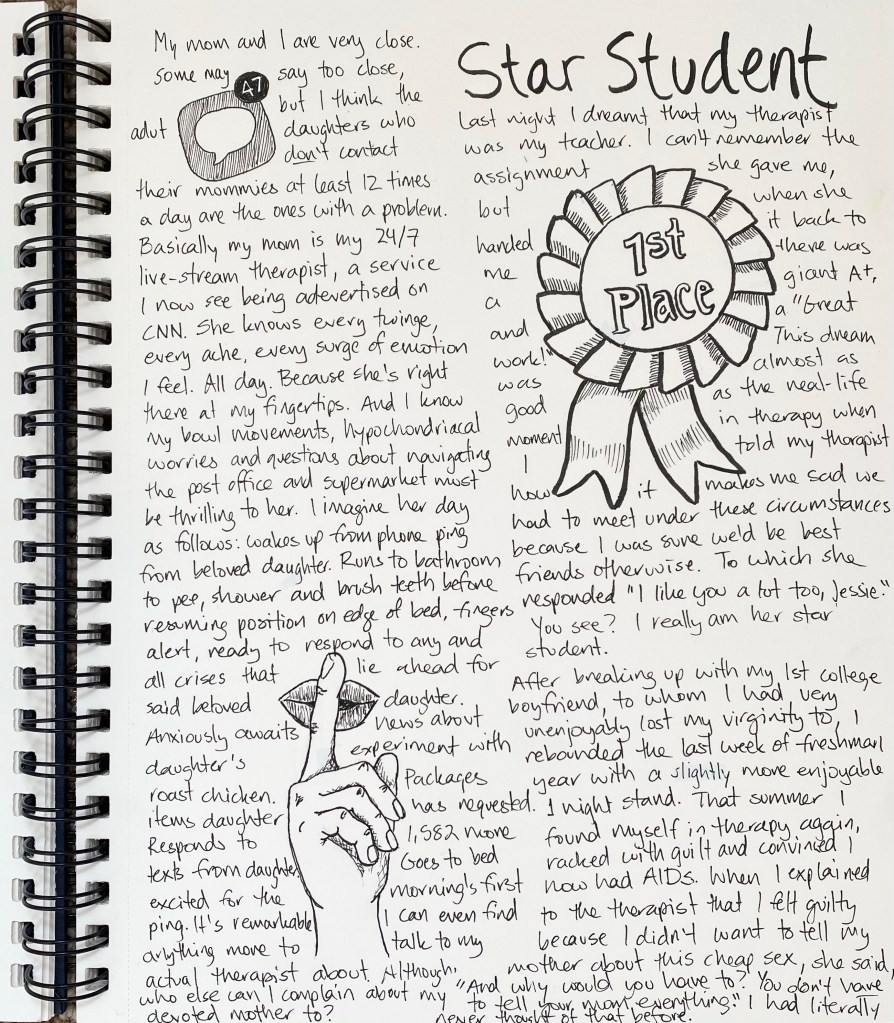 My mom and I are very close.
some may say too close,
47
but I think the
adut daughters who
don't contact
their mommies at least 12 times
a day are the ones with a problem.
Basically my mom is my 24/7
live-stream therapist, a service
I now see being adevertised on
CNN. She knows every twinge,
every ache, every surge of emotion
I feel. All day. Because she's right
there at my fingertips. And I know
my bowl movements, hypochondriacal
worries and questions about navigating
the post office and supermarket must
be thrilling to her. I imagine her day
as follows: wakes up from phone ping
from beloved daughter. Runs to bathroom
to pee, shower and brush teeth before
resuming position on edge of bed, fingers
alert, ready to respond to any and
all crises that lie ahead for
said beloved daughter.
Anxiously awaits news about
daughter's experiment with
roast chicken. Packages
items daughter has requested.
Responds to 1,582 more
texts from daughter. Goes to bed
excited for the morning's first
ping. It's remarkable I can even find
anything more to talk to my
actual therapist about. Although,
who else can I complain about my
devoted mother to?
Star Student
Last night I dreamt that my therapist
was my teacher. I can't remember the
assignment she gave me,
but when she
handed it back to
me there was
a giant A+,
and a "Great
work!" This dream
was almost as
good as the real-life
moment in therapy when
I told my therapist
how it makes me sad we
1st
Place
had to meet under these circumstances
because I was sure we'd be best
friends otherwise. To which she
responded "I like you a lot too, Jessie."
You see? I really am her star
student.
After breaking up with my 1st college
boyfriend, to whom I had very
unenjoyably lost my virginity to, I
rebounded the last week of freshman
year with a slightly more enjoyable
1 night stand. That summer I
found myself in therapy again,
racked with guilt and convinced I
now had AIDs. When I explained
to the therapist that I felt guilty
because I didn't want to tell my
mother about this cheap sex, she said,
"And why would you have to? You don't have
to tell your mom everything." I had literally
never thought of that before.